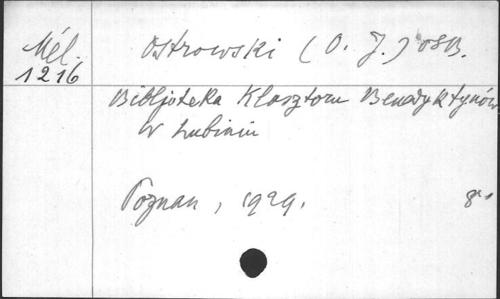 Mél.
1216
Ostrowski (O. J.) OSB.
Bibljoteka Klasztoru Benedyktynów
w Lubiniu
Poznan, 1929.
8°